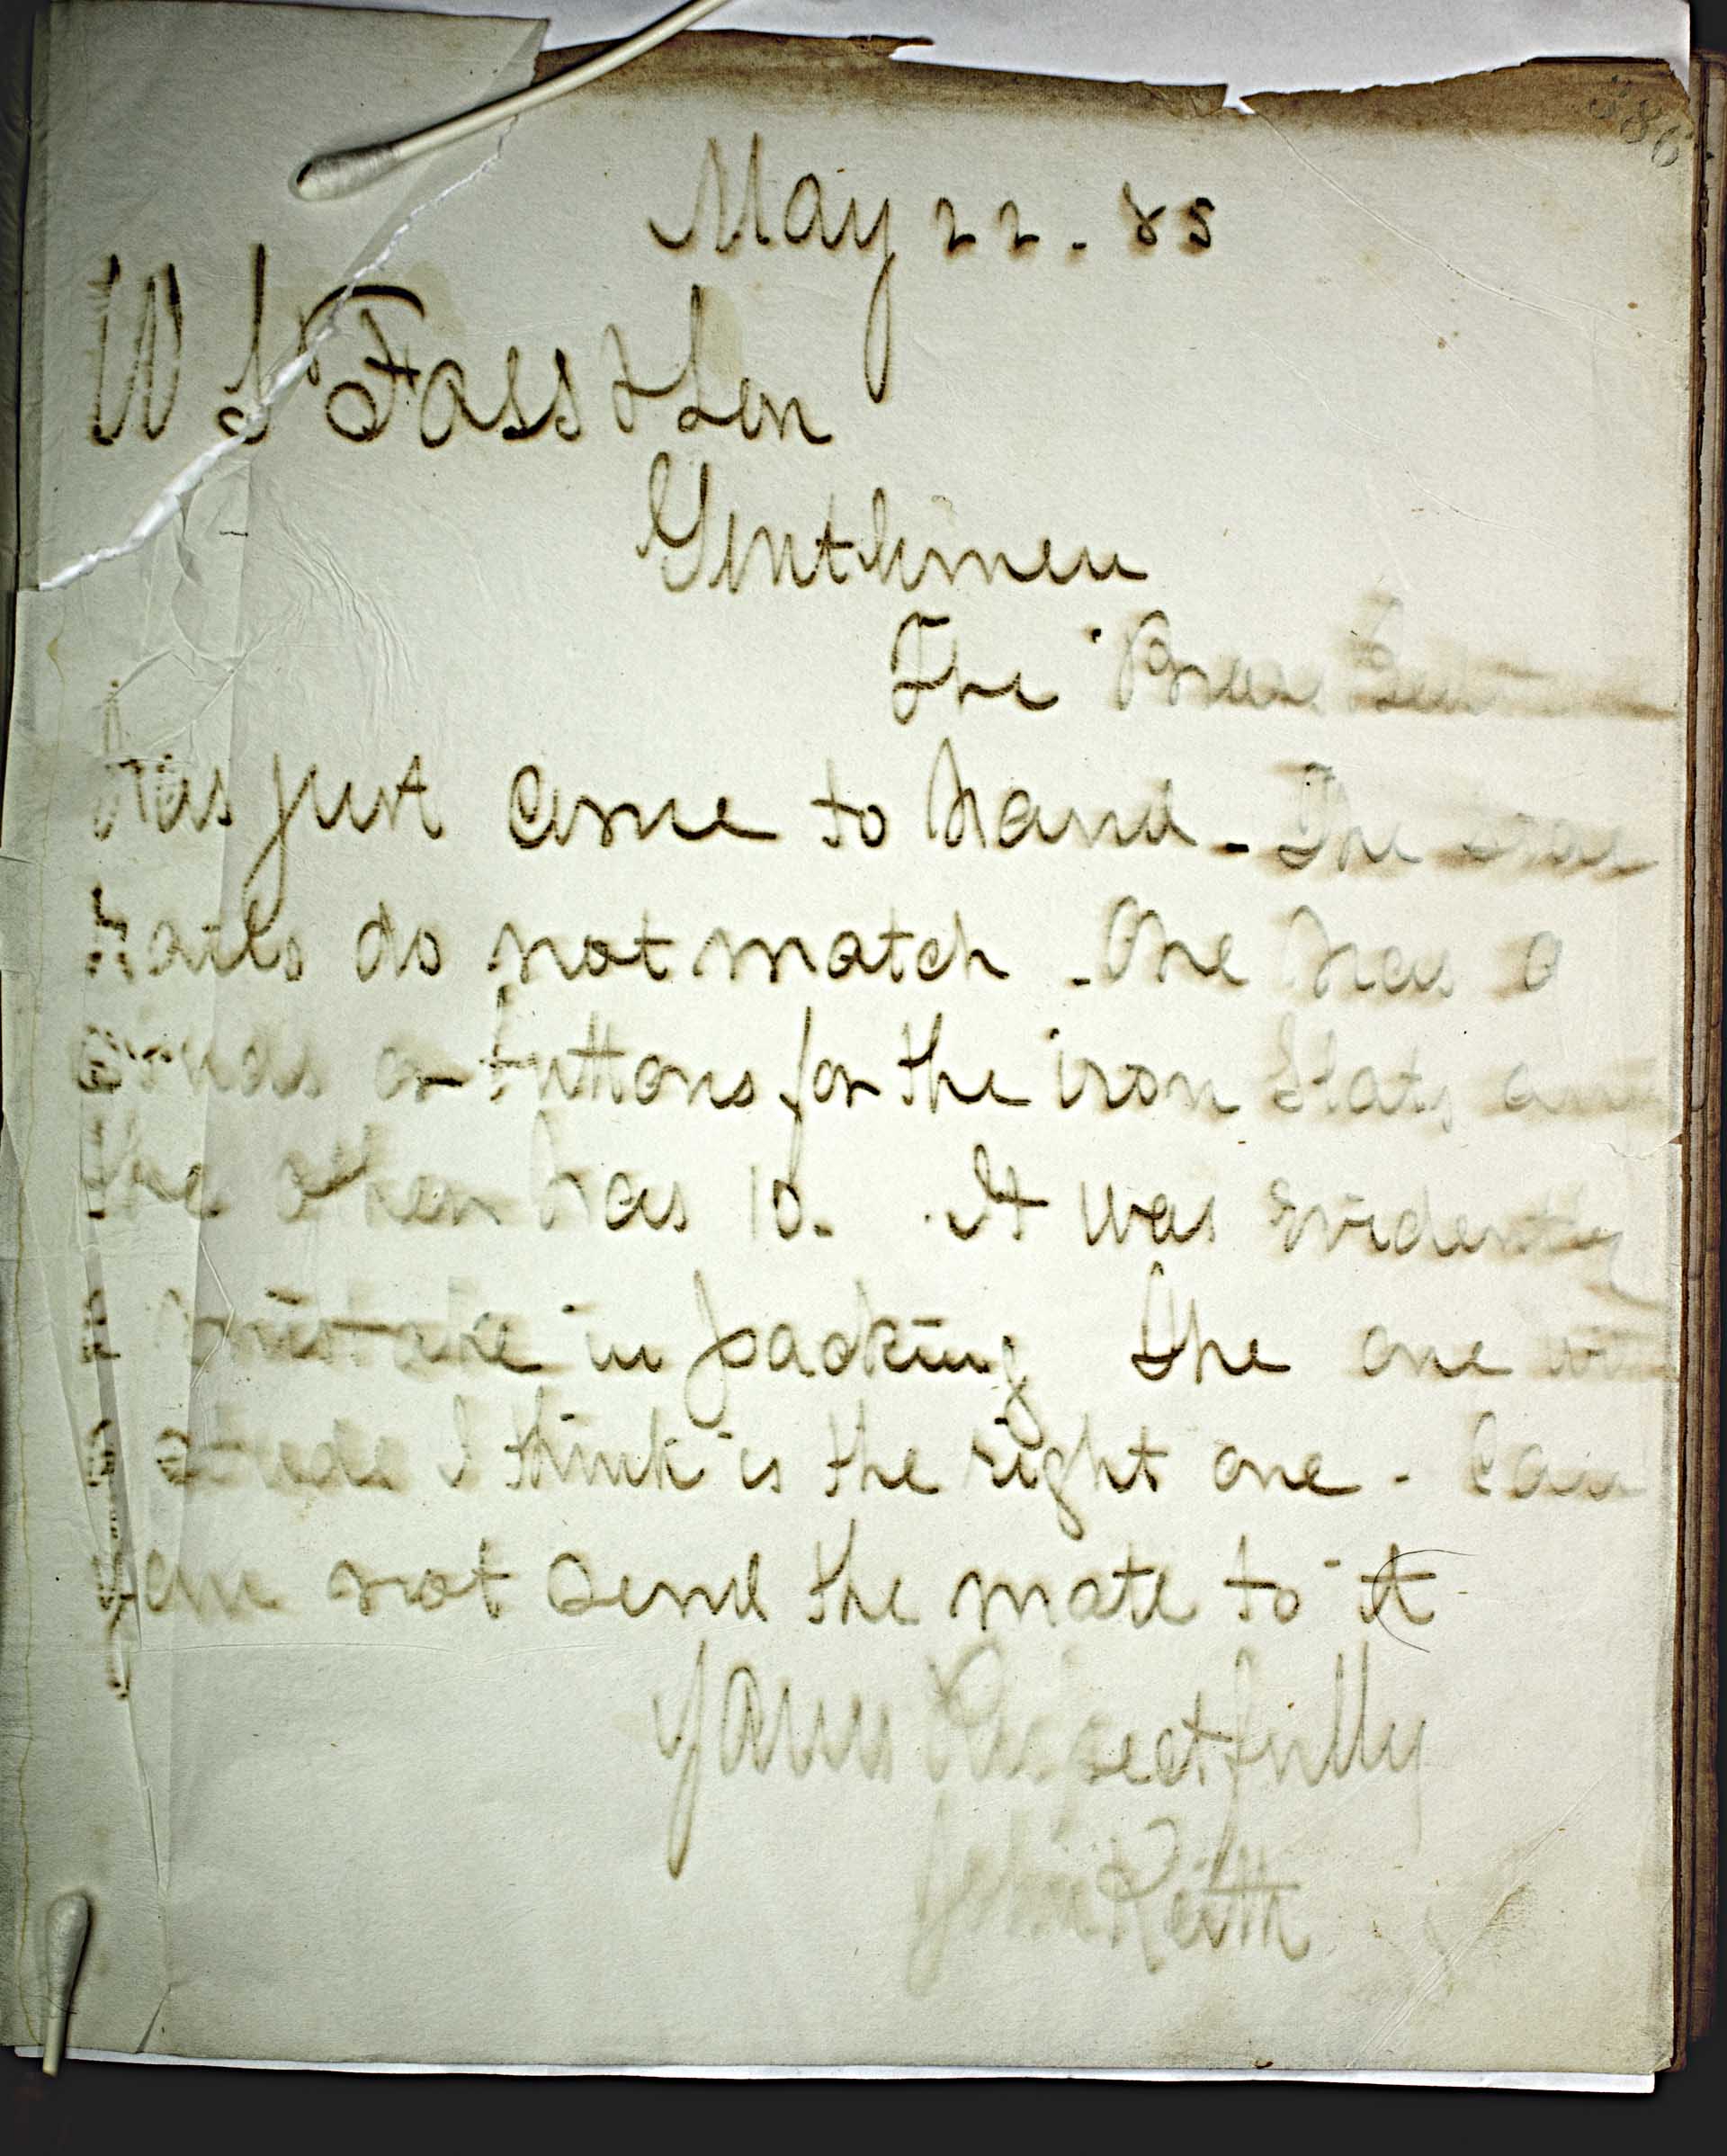 386
May 22. 85
W S Foss & Son
Gentlemen
The Brass
has just come to hand. The
Rails do not match. One has 9
studs or buttons for the iron Slats and
the other has 10. It was evidently
a mistake in packing The one
studs I think is the right one. Can
you not send the mate to it
Yours Respectfully
John Keith